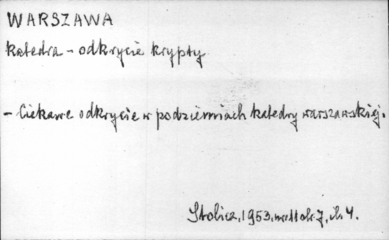 WARSZAWA
katedra - odkrycie krypty
- Ciekawe odkrycie w podziemiach katedry warszawskiej.
Stolica, 1953, nr 11 str. 7, il. 4.